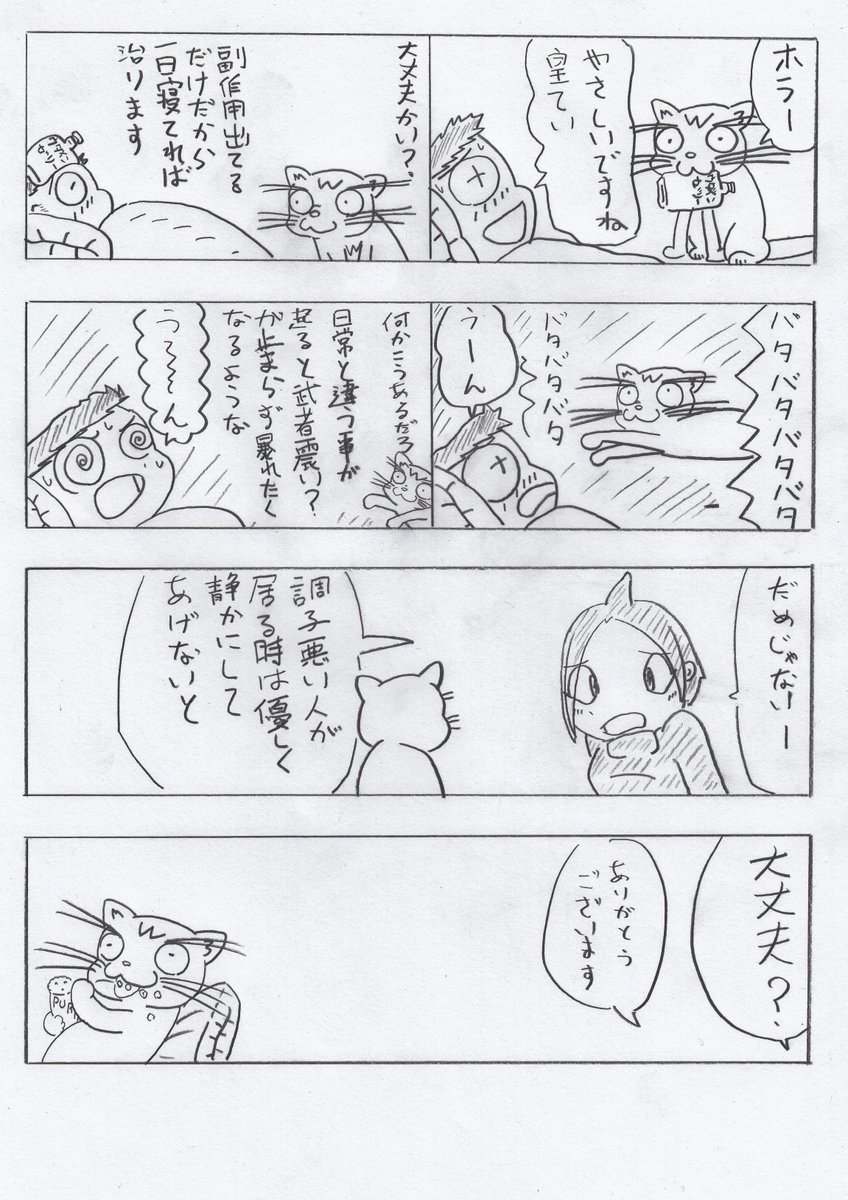 ホラー
やさしいですね
皇てい
大丈夫かい?
副作用出てる
だけだから
一日寝てれば
治ります
バタバタバタバタ
バタバタバタ
うーん
何かこうあるだろ
日常と違う事が
起ると武者震い?
が止まらず暴れたく
なるような
う〜〜ん
だめじゃないー
調子悪い人が
居る時は優しく
静かにして
あげないと
大丈夫?
ありがとう
ございます
PUR